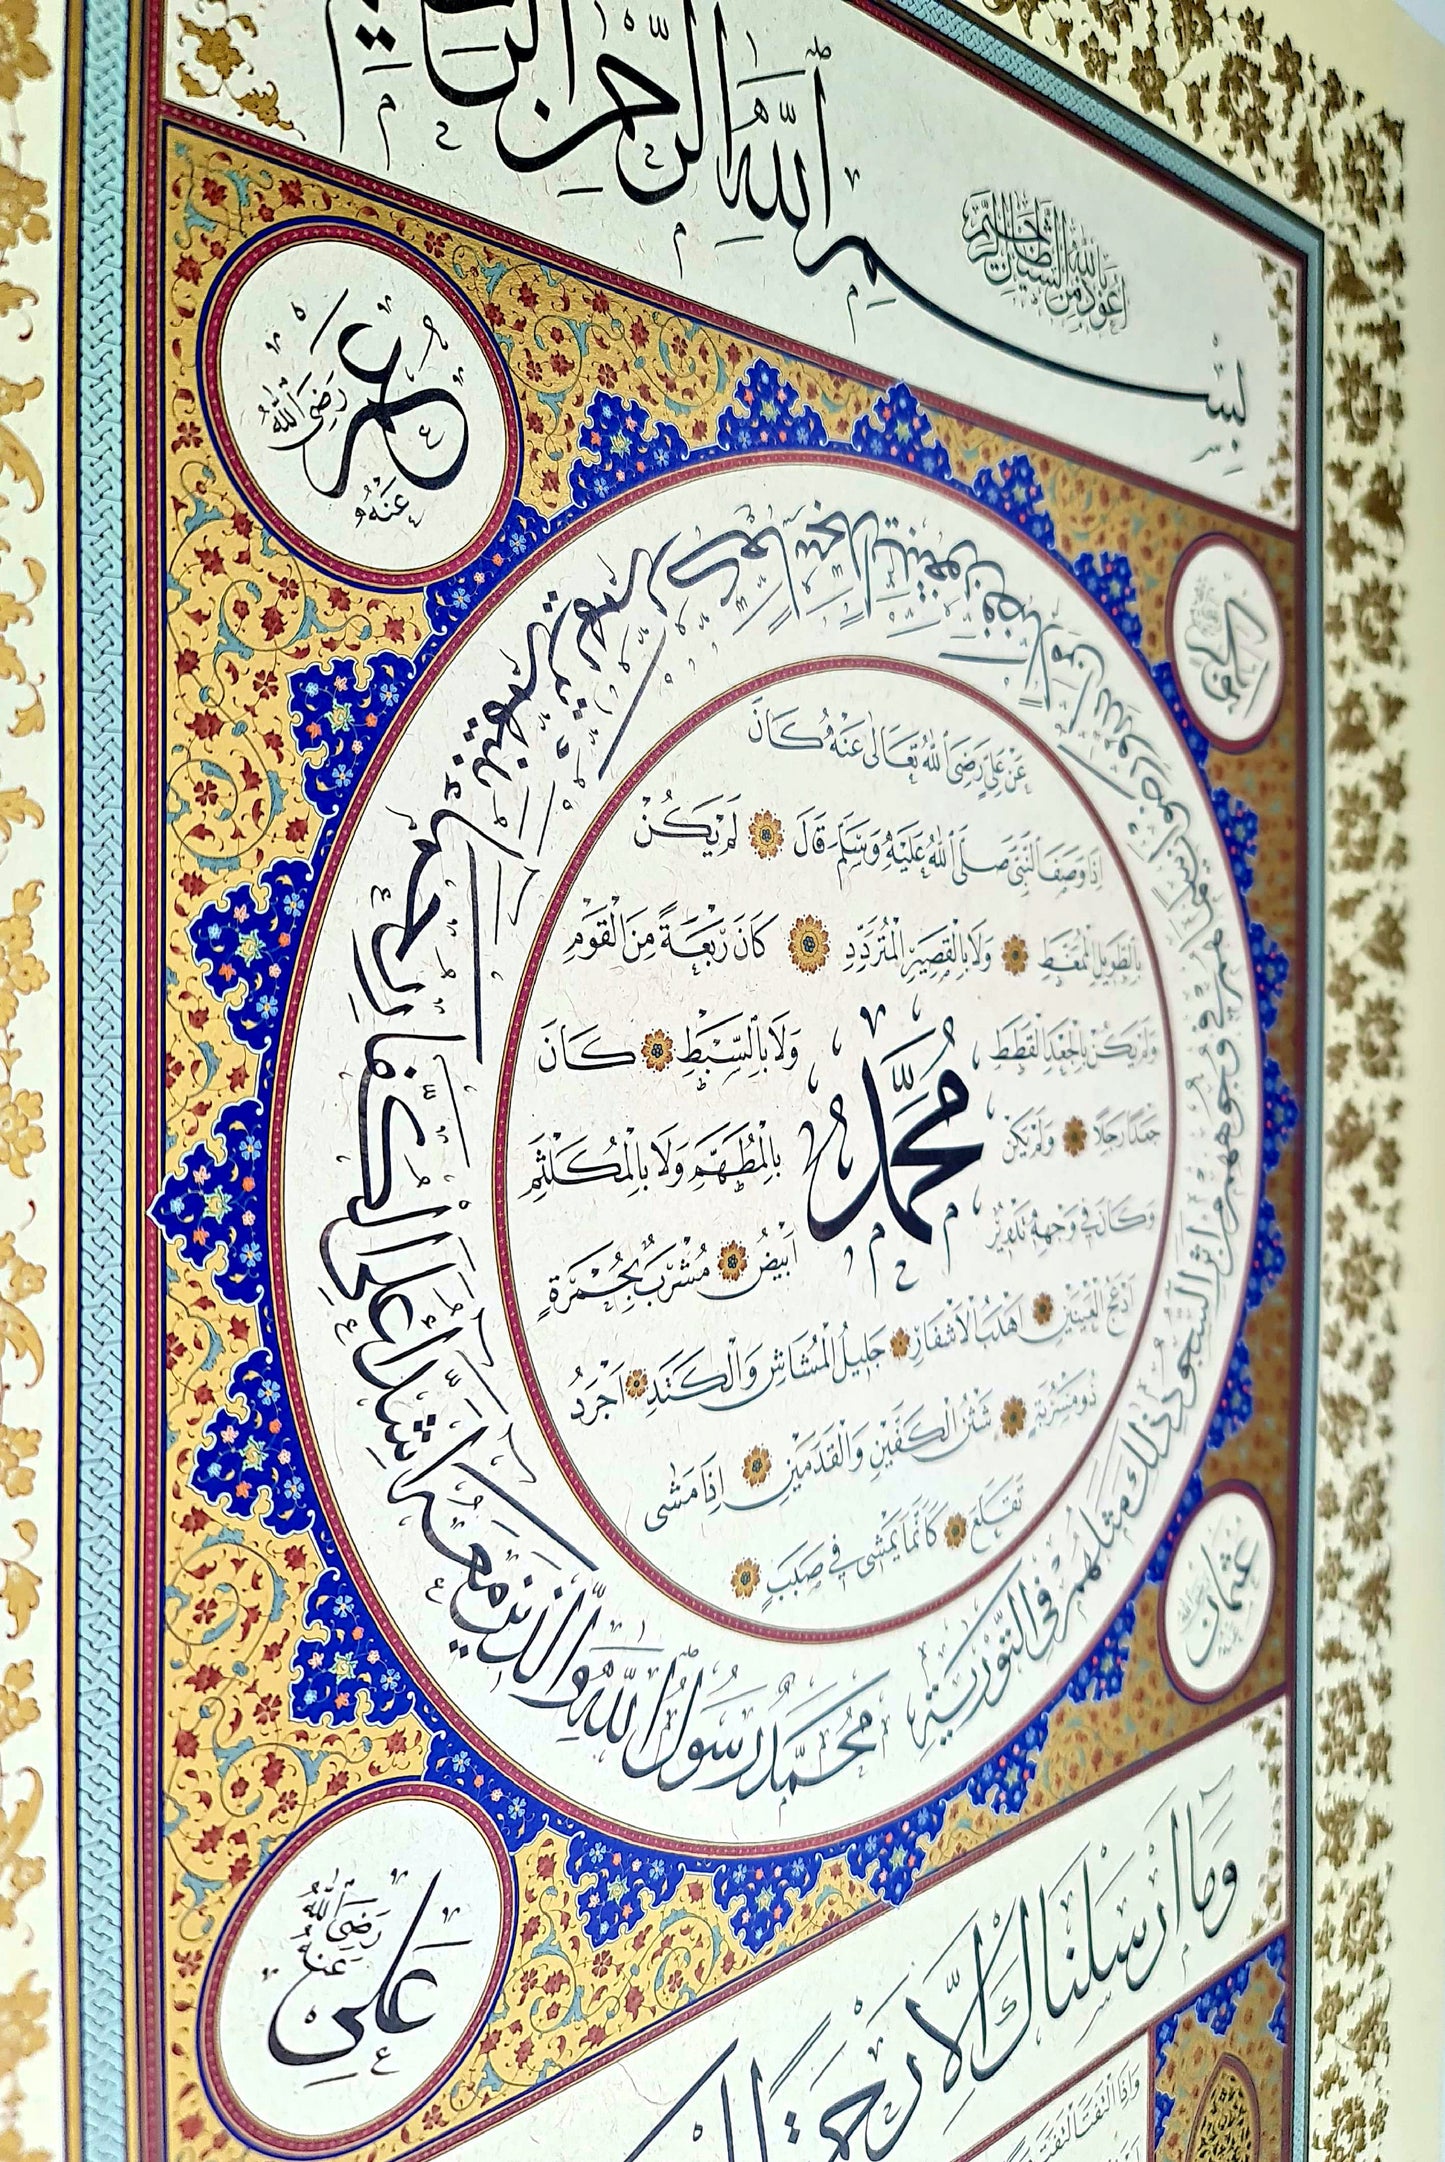 اعوذ بالله من الشيطان الرجيم
بِسْمِ اللّٰهِ الرَّحْمٰنِ الرَّحِيمِ
عُمَر رَضِيَ اللّٰهُ عَنْهُ
مُحَمَّدٌ رَسُولُ اللّٰهِ وَالَّذِينَ مَعَهُ اَشِدَّاءُ عَلَى الْكُفَّارِ رُحَمَاءُ بَيْنَهُمْ تَرٰيهُمْ رُكَّعًا سُجَّدًا يَبْتَغُونَ فَضْلًا مِنَ اللّٰهِ وَرِضْوَانًا سِيمَاهُمْ فِي وُجُوهِهِمْ مِنْ اَثَرِ السُّجُودِ ذٰلِكَ مَثَلُهُمْ فِي التَّوْرٰيةِ
عَنْ عَلِيٍّ رَضِيَ اللّٰهُ تَعَالٰى عَنْهُ كَانَ
اِذَا وَصَفَ النَّبِيَّ صَلَّى اللّٰهُ عَلَيْهِ وَسَلَّمَ قَالَ لَمْ يَكُنْ
بِالطَّوِيلِ الْمُمَّغِطِ وَلَا بِالْقَصِيرِ الْمُتَرَدِّدِ كَانَ رَبْعَةً مِنَ الْقَوْمِ
وَلَمْ يَكُنْ بِالْجَعْدِ الْقَطَطِ وَلَا بِالسَّبْطِ كَانَ
جَعْدًا رَجِلًا وَلَمْ يَكُنْ بِالْمُطَهَّمِ وَلَا بِالْمُكَلْثَمِ
مُحَمَّد
وَكَانَ فِي وَجْهِهِ تَدْوِيرٌ اَبْيَضُ مُشْرَبٌ بِحُمْرَةٍ
اَدْعَجُ الْعَيْنَيْنِ اَهْدَبُ الْاَشْفَارِ جَلِيلُ الْمُشَاشِ وَالْكَتَدِ اَجْرَدُ
ذُو مَسْرُبَةٍ شَثْنُ الْكَفَّيْنِ وَالْقَدَمَيْنِ اِذَا مَشٰى
تَقَلَّعَ كَاَنَّمَا يَمْشِي فِي صَبَبٍ
عُثْمَان
عَلِيّ رَضِيَ اللّٰهُ عَنْهُ
وَمَا اَرْسَلْنَاكَ اِلَّا رَحْمَةً
وَاِذَا الْتَفَتَ الْتَفَتَ